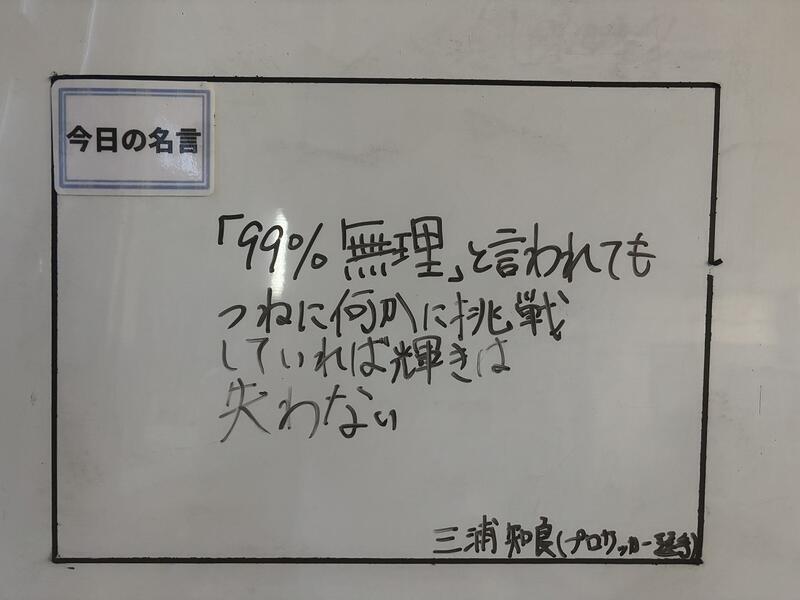 今日の名言
「99%無理」と言われても
つねに何かに挑戦
していれば輝きは
失わない
三浦知良(プロサッカー選手)